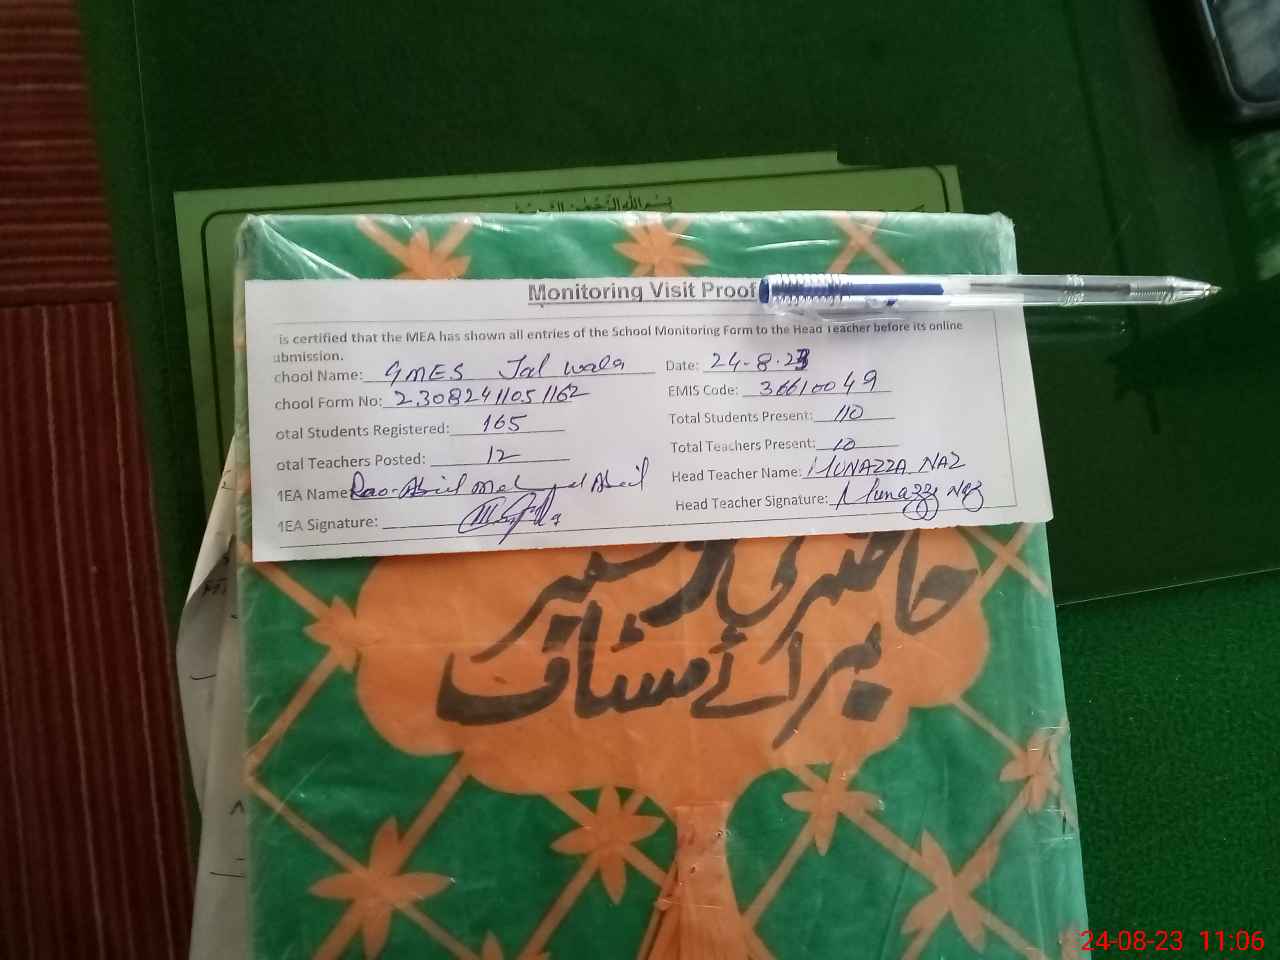 بسم اللہ الرحمن الرحیم
Monitoring Visit Proof
is certified that the MEA has shown all entries of the School Monitoring Form to the Head Teacher before its online
ubmission.
chool Name: GMES Jal wala Date: 24-8-23
chool Form No: 2308241105 1162 EMIS Code: 36610049
otal Students Registered: 165 Total Students Present: 110
otal Teachers Posted: 12 Total Teachers Present: 10
1EA Name: Rao Head Teacher Name: MUNAZZA NAZ
1EA Signature: Head Teacher Signature: Munazza Naz
حاضری رجسٹر
برائے سٹاف
24-08-23 11:06